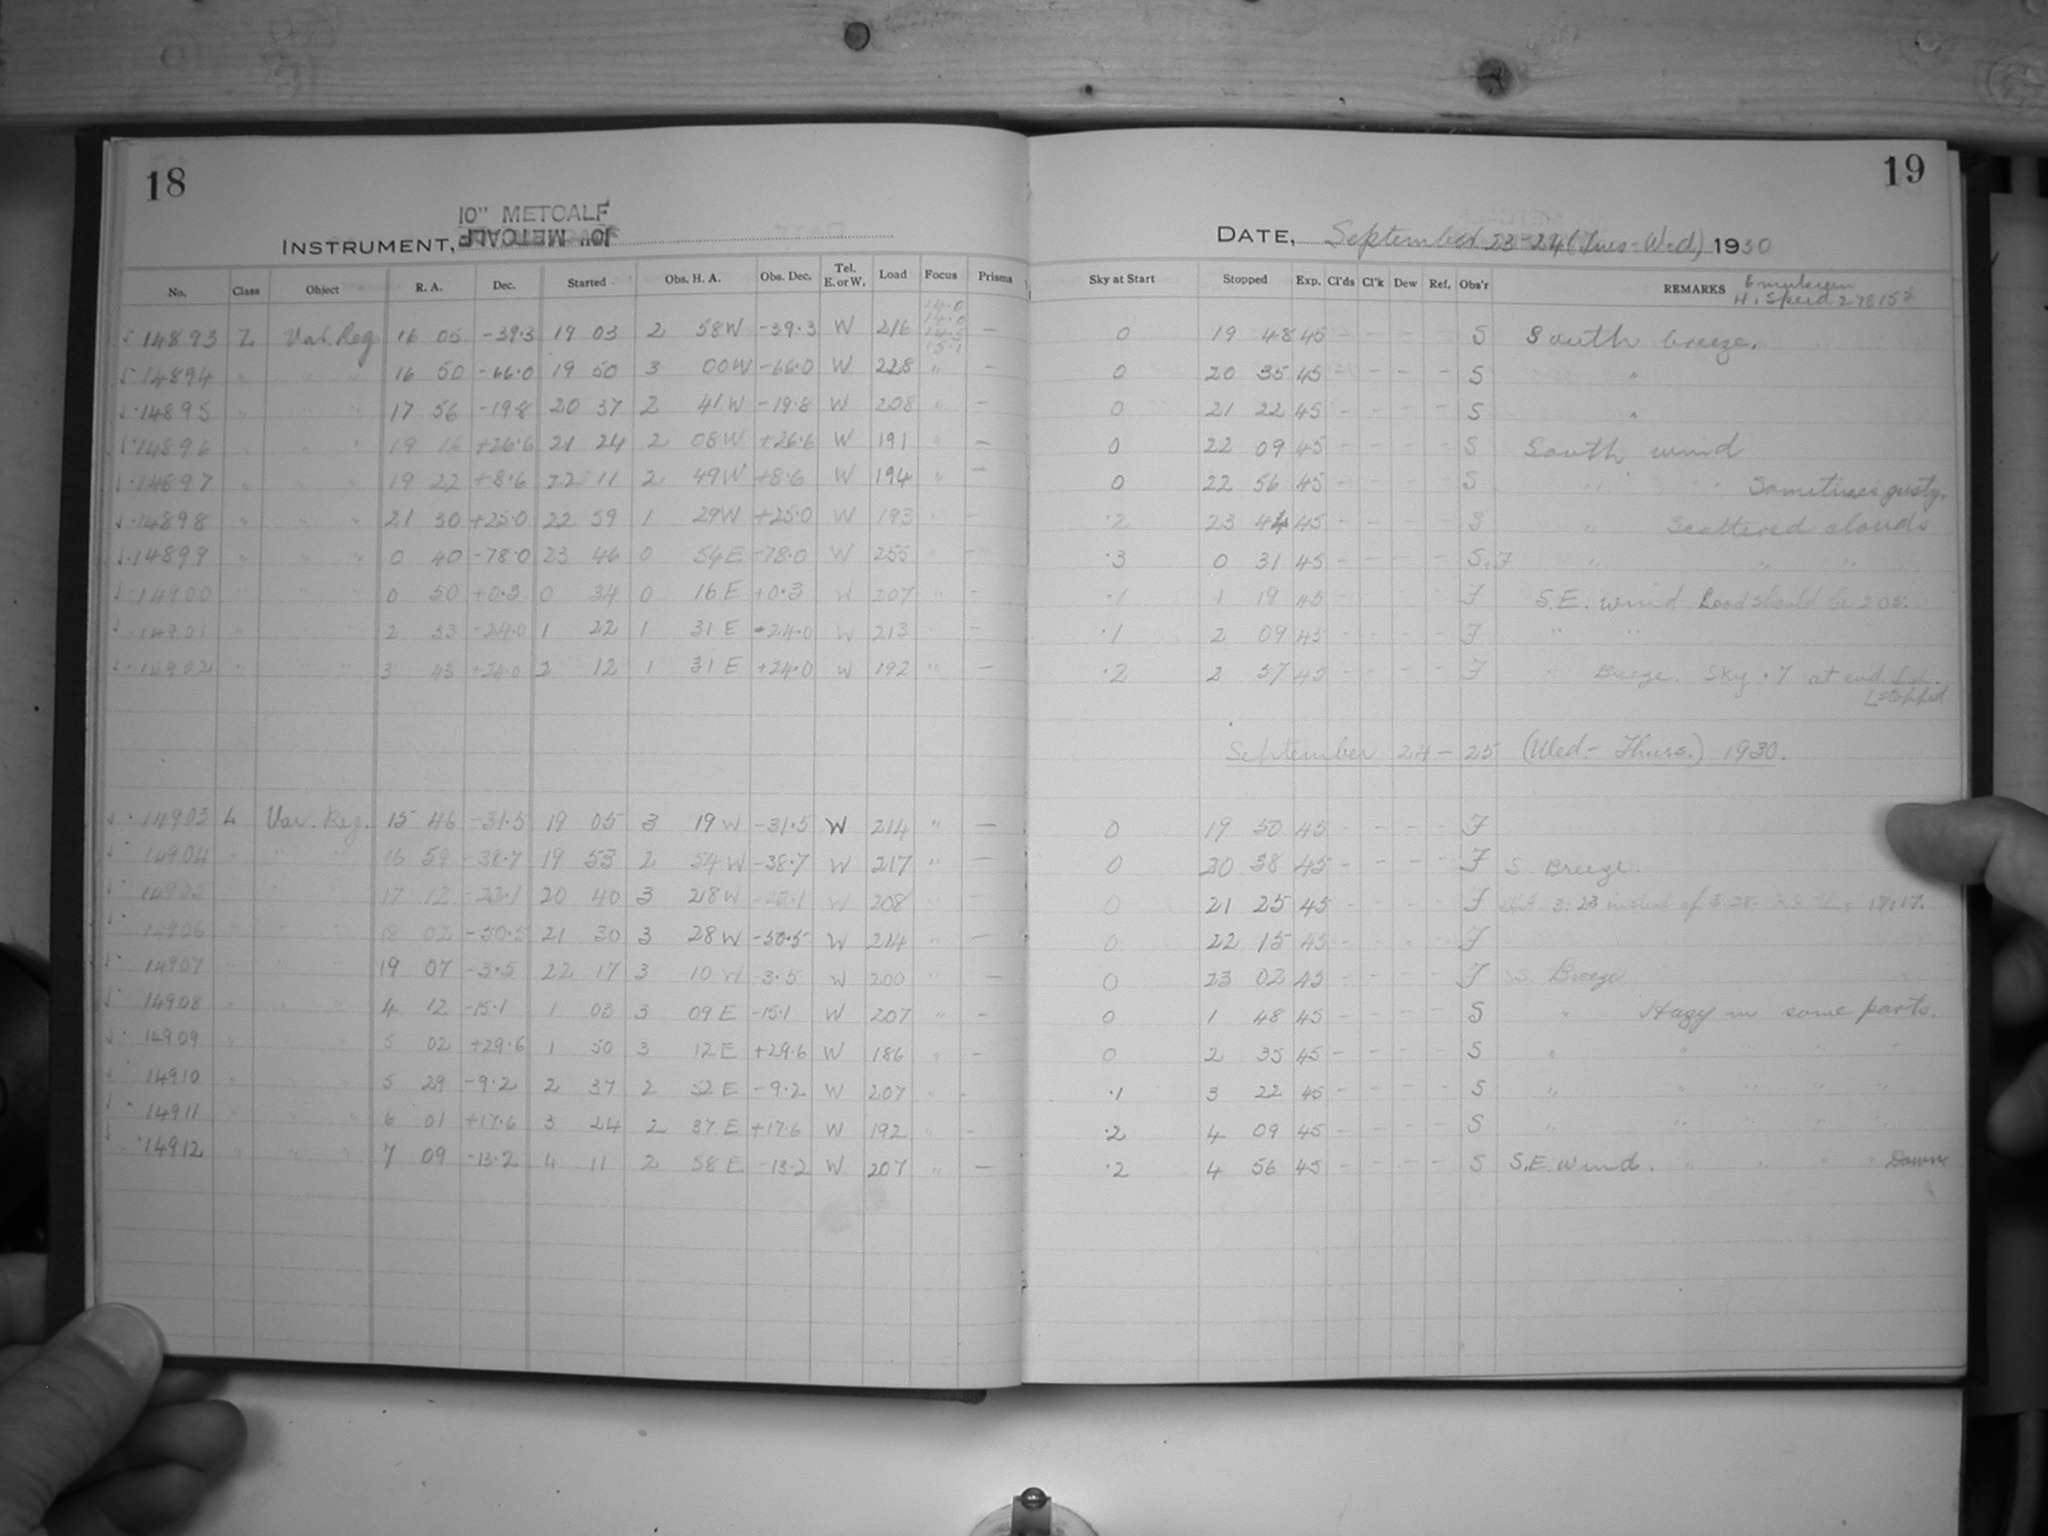 18
10" METCALF
INSTRUMENT, 10" METCALF
No. Class Object R. A. Dec. Started Obs. H. A. Obs. Dec. Tel. E. or W. Load Focus Prisms
14893 L Var. Reg 16 05 -39.3 19 03 2 58 W -39.3 W 216 —
14894 " " " 16 50 -66.0 19 50 3 00 W -66.0 W 228 " —
14895 " " " 17 56 -19.8 20 37 2 41 W -19.8 W 208 " —
14896 " " " 19 16 +26.6 21 24 2 08 W +26.6 W 191 " —
14897 " " " 19 22 +8.6 22 11 2 49 W +8.6 W 194 " —
14898 " " " 21 30 +25.0 22 59 1 29 W +25.0 W 193 " —
14899 " " " 0 40 -78.0 23 46 0 54 E -78.0 W 255 " —
14900 " " " 0 50 +0.3 0 34 0 16 E +0.3 W 207 " —
14901 " " " 2 53 -24.0 1 22 1 31 E -24.0 W 213 " —
14902 " " " 3 43 +24.0 2 12 1 31 E +24.0 W 192 " —
14903 L Var. Reg. 15 46 -31.5 19 05 3 19 W -31.5 W 214 " —
14904 " " " 16 59 -38.7 19 53 2 54 W -38.7 W 217 " —
14905 " " " 17 12 -22.1 20 40 3 28 W -22.1 W 208 " —
14906 " " " 18 02 -50.5 21 30 3 28 W -50.5 W 214 " —
14907 " " " 19 07 -3.5 22 17 3 10 W -3.5 W 200 " —
14908 " " " 4 12 -15.1 1 03 3 09 E -15.1 W 207 " —
14909 " " " 5 02 +29.6 1 50 3 12 E +29.6 W 186 " —
14910 " " " 5 29 -9.2 2 37 2 52 E -9.2 W 207 " —
14911 " " " 6 01 +17.6 3 24 2 37 E +17.6 W 192 " —
14912 " " " 7 09 -13.2 4 11 2 58 E -13.2 W 207 " —
19
DATE, September 23-24 (Tues-Wed) 1930
Sky at Start Stopped Exp. Cl'ds Cl'k Dew Ref. Obs'r REMARKS Emulsion
H. Speed 27815
0 19 48 45 - - - - S South breeze.
0 20 35 45 - - - - S "
0 21 22 45 - - - - S "
0 22 09 45 - - - - S South wind
0 22 56 45 - - - - S " " Sometimes gusty.
.2 23 44 45 - - - - S " Scattered clouds
.3 0 31 45 - - - - S.F " " "
.1 1 19 45 - - - - F S.E. wind Load should be 205.
.1 2 09 45 - - - - F " "
.2 2 57 45 - - - - F " Breeze. Sky .7 at end.
stopped
September 24-25 (Wed-Thurs.) 1930.
0 19 50 45 - - - - F
0 20 38 45 - - - - F S. Breeze.
0 21 25 45 - - - - F 3.23 instead of 3.28. 17.17.
0 22 15 45 - - - - F
0 23 02 45 - - - - F S. Breeze
0 1 48 45 - - - - S " Hazy in some parts.
0 2 35 45 - - - - S " " " " "
.1 3 22 45 - - - - S " " " " "
.2 4 09 45 - - - - S " " " " "
.2 4 56 45 - - - - S S.E. Wind. " " " " Dawn